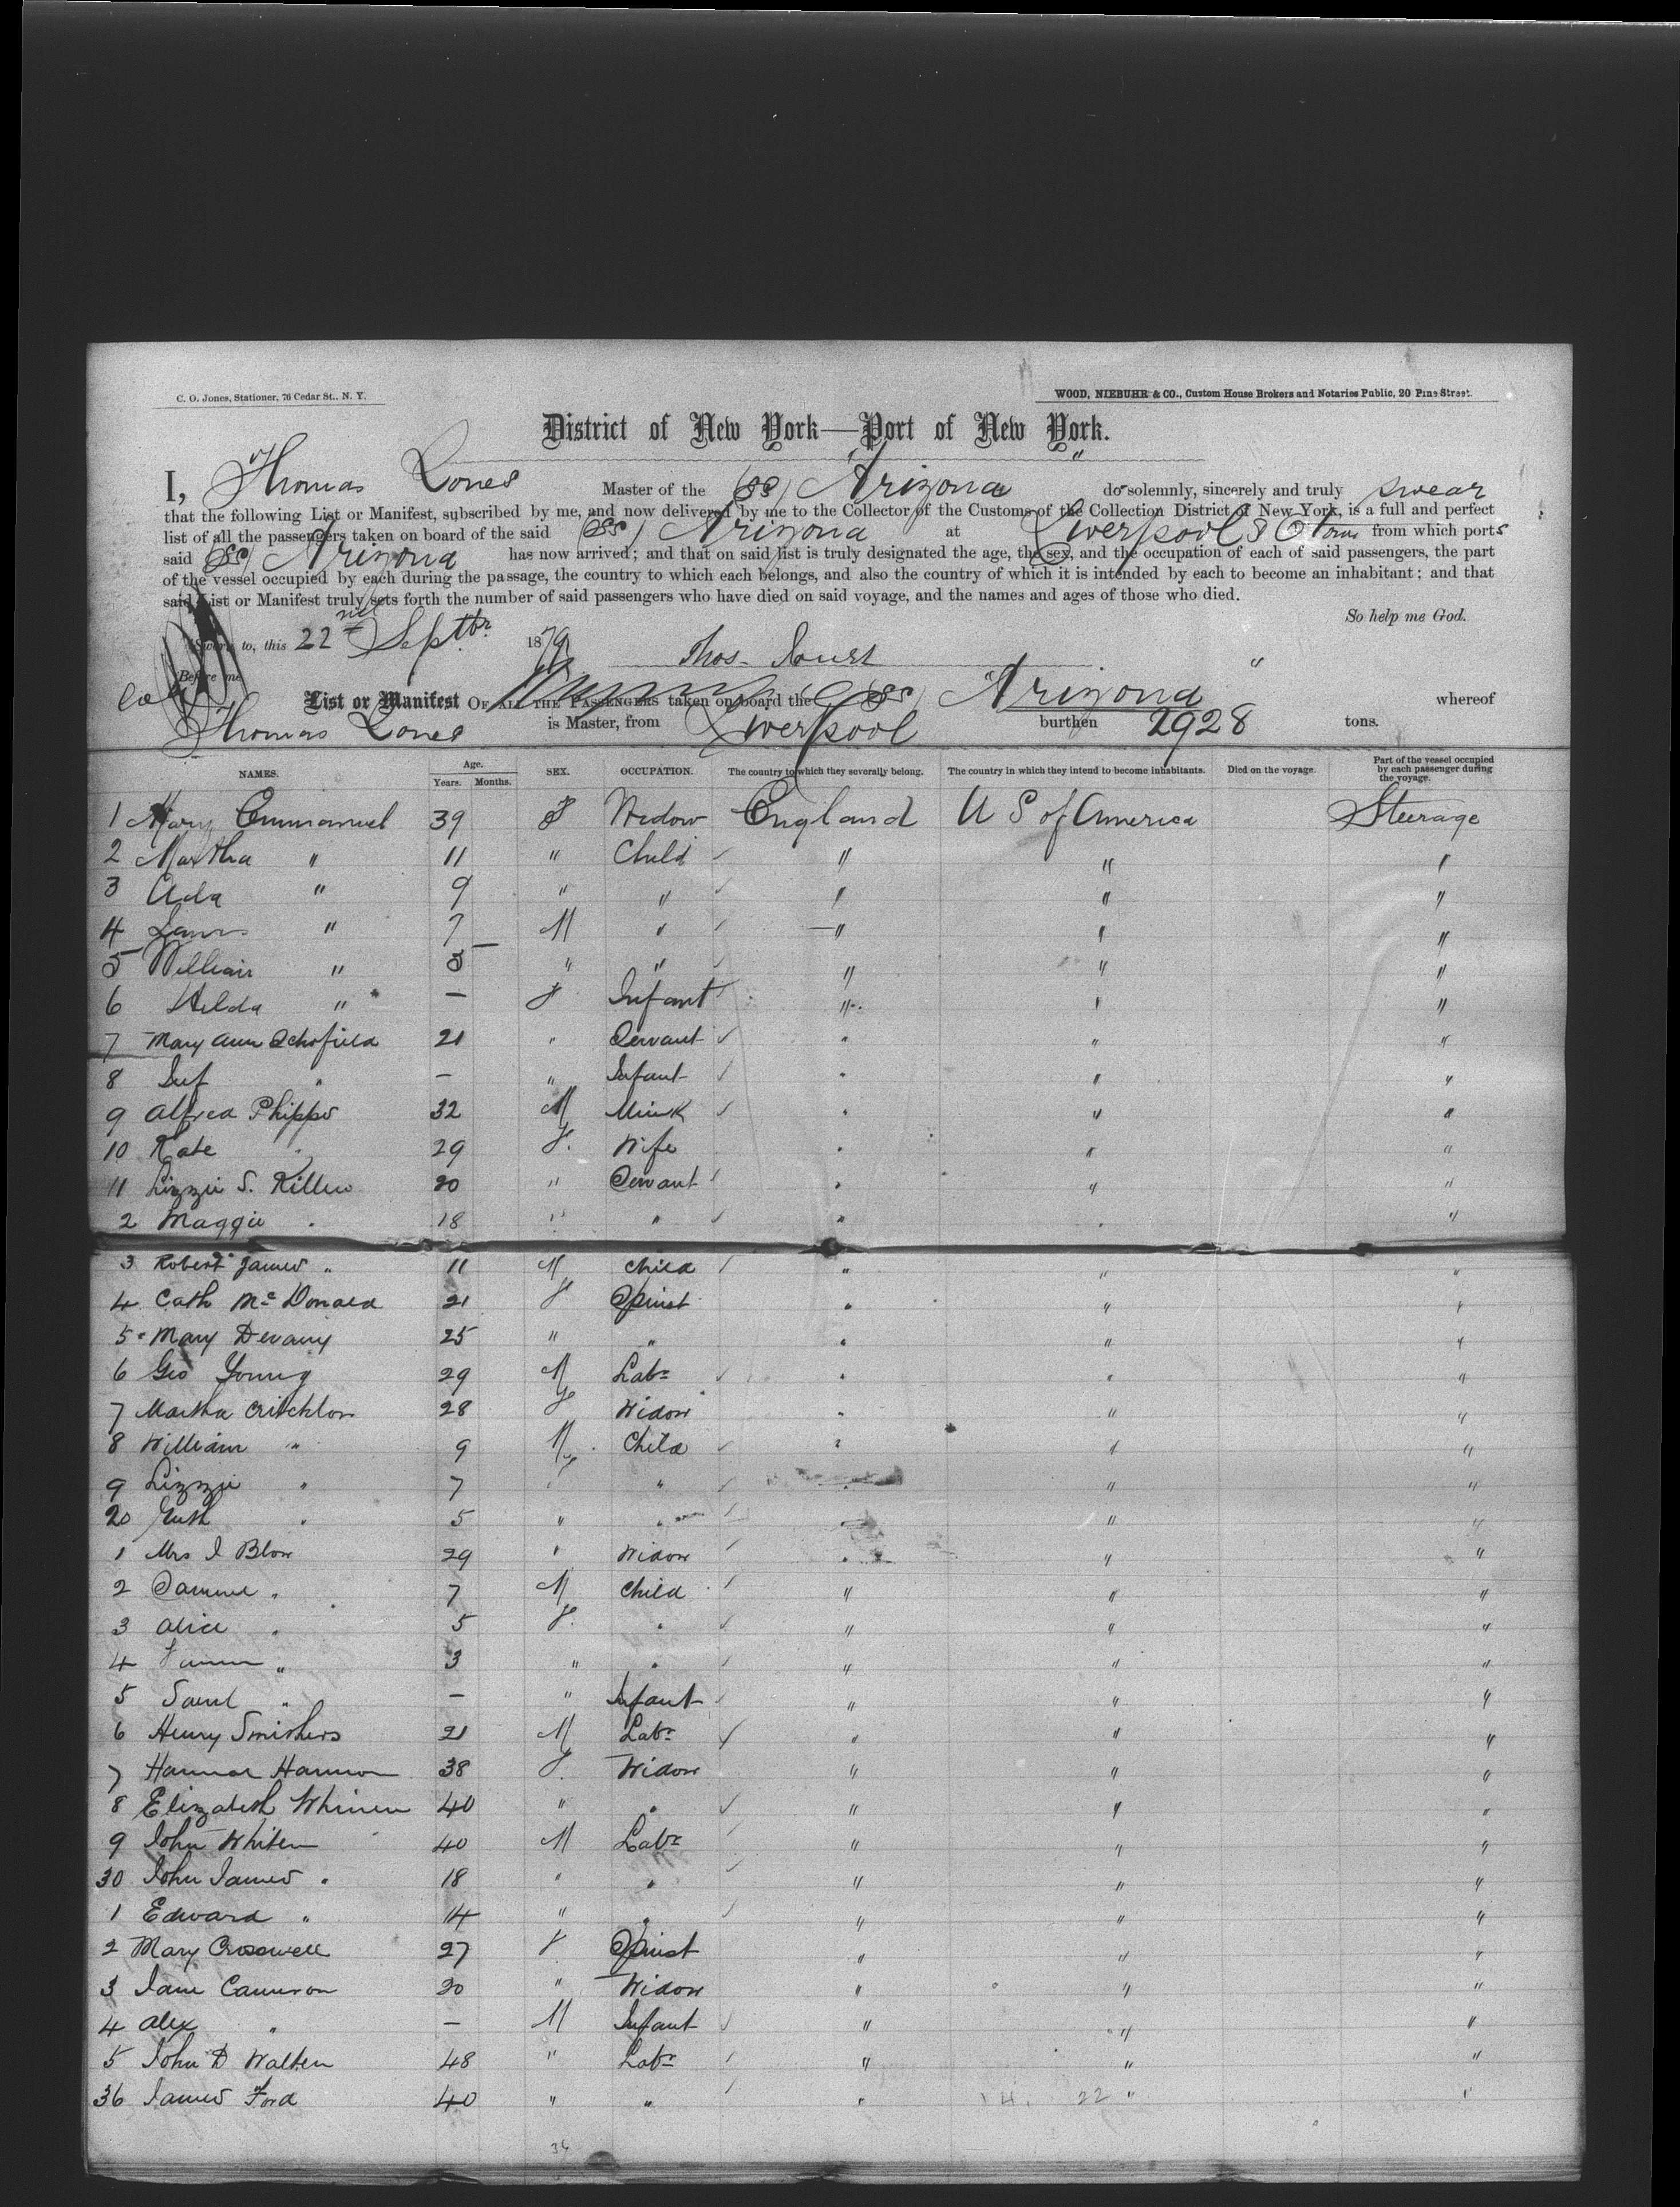 C. O. Jones, Stationer, 76 Cedar St., N. Y.
WOOD, NIEBUHR & CO., Custom House Brokers and Notaries Public, 20 Pine Street.
District of New York—Port of New York.
I, Thomas Jones Master of the (SS) Arizona do solemnly, sincerely and truly swear
that the following List or Manifest, subscribed by me, and now delivered by me to the Collector of the Customs of the Collection District of New York, is a full and perfect
list of all the passengers taken on board of the said (SS) Arizona at Liverpool & from which ports
said (SS) Arizona has now arrived; and that on said list is truly designated the age, the sex, and the occupation of each of said passengers, the part
of the vessel occupied by each during the passage, the country to which each belongs, and also the country of which it is intended by each to become an inhabitant; and that
said List or Manifest truly sets forth the number of said passengers who have died on said voyage, and the names and ages of those who died.
So help me God.
Sworn to, this 22nd Septbr 1879 Thos.
Before me
List or Manifest OF ALL THE PASSENGERS taken on board the (SS) Arizona whereof
Thomas Jones is Master, from Liverpool burthen 2928 tons.
NAMES. Age. Years. Months. SEX. OCCUPATION. The country to which they severally belong. The country in which they intend to become inhabitants. Died on the voyage. Part of the vessel occupied by each passenger during the voyage.
1 Mary Emmanuel 39 F Widow England U S of America Steerage
2 Martha " 11 " Child " " "
3 Ada " 9 " " " " "
4 " 7 M " " " "
5 William " 5 " " " " "
6 Hilda " — F Infant " " "
7 Mary Ann Schofield 21 " Servant " " "
8 Inf " — " Infant " " "
9 Alfred Phipps 32 M " " "
10 Kate " 29 F. Wife " " "
11 Lizzie S. 20 " Servant " " "
2 Maggie " 18 " " " " "
3 Robert James " 11 M Child " " "
4 Cath McDonald 21 F Spinst " " "
5 Mary Devany 25 " " " " "
6 Geo Young 29 M Labr " " "
7 Martha Critchlow 28 F Widow " " "
8 William " 9 M Child " " "
9 Lizzie " 7 F " " " "
20 Ruth " 5 " " " " "
1 Mrs J Blow 29 " Widow " " "
2 Samuel " 7 M Child " " "
3 Alice " 5 F. " " " "
4 " 3 " " " " "
5 Saml " — " Infant " " "
6 Henry Smithers 21 M Labr " " "
7 Hannah 38 F. Widow " " "
8 Elizabeth 40 " " " " "
9 John Whiten 40 M Labr " " "
30 John James " 18 " " " " "
1 Edward " 14 " " " " "
2 Mary Crosswell 27 F Spinst " " "
3 Jane Cameron 20 " Widow " " "
4 Alex " — M Infant " " "
5 John D Walten 48 " Labr " " "
36 James Ford 40 " " " " "
14. 22